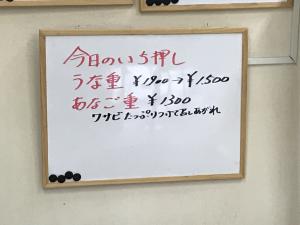 今日のいち押し
うな重 ¥1900→¥1500
あなご重 ¥1300
ワサビたっぷりつけておしあがれ